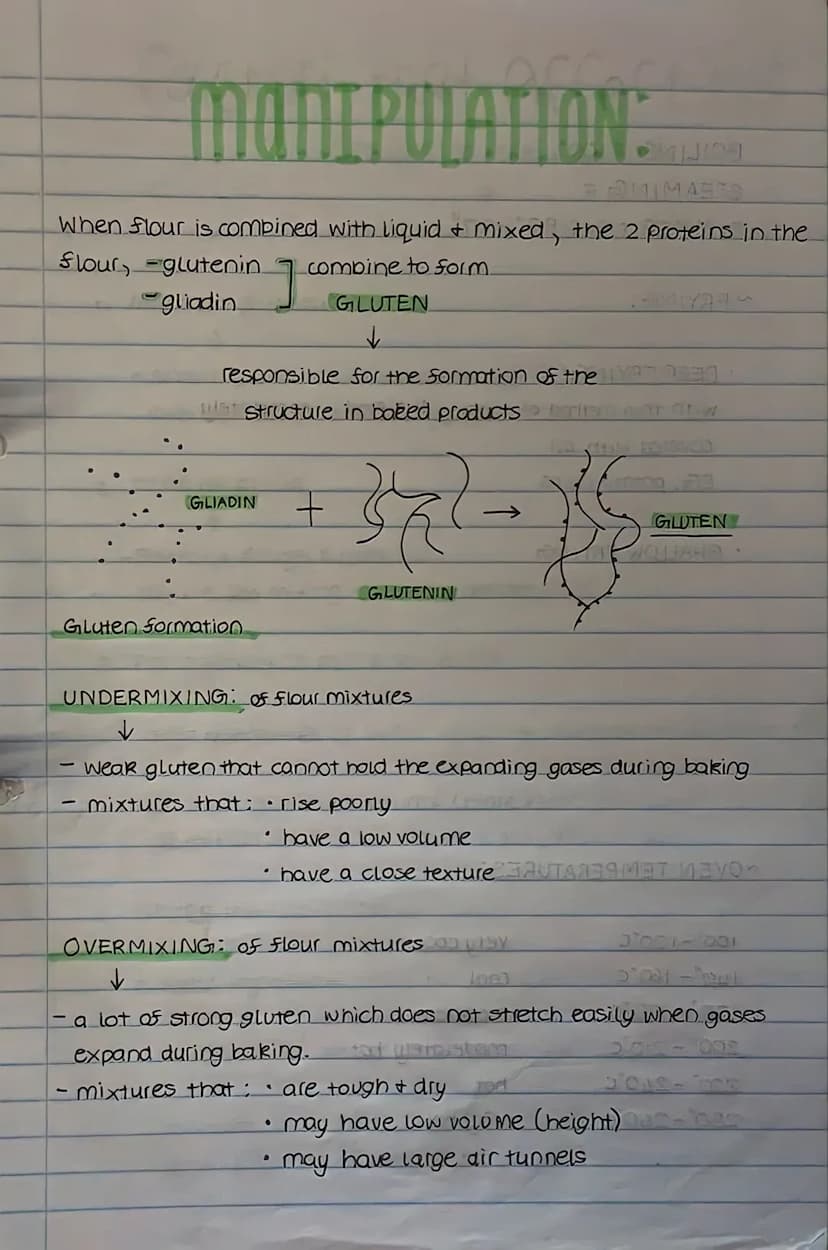 MANIPULATION:
When flour is combined with liquid + mixed, the 2 proteins in the
flour, - glutenin ] combine to form
- gliadin GLUTEN
↓
responsible for the formation of the
structure in baked products
GLIADIN + → GLUTEN
GLUTENIN
Gluten formation
UNDERMIXING: of flour mixtures
↓
- weak gluten that cannot hold the expanding gases during baking
- mixtures that: • rise poorly
• have a low volume
• have a close texture
OVERMIXING: of flour mixtures
↓
- a lot of strong gluten which does not stretch easily when gases
expand during baking.
- mixtures that: • are tough + dry
• may have low volume (height)
• may have large air tunnels